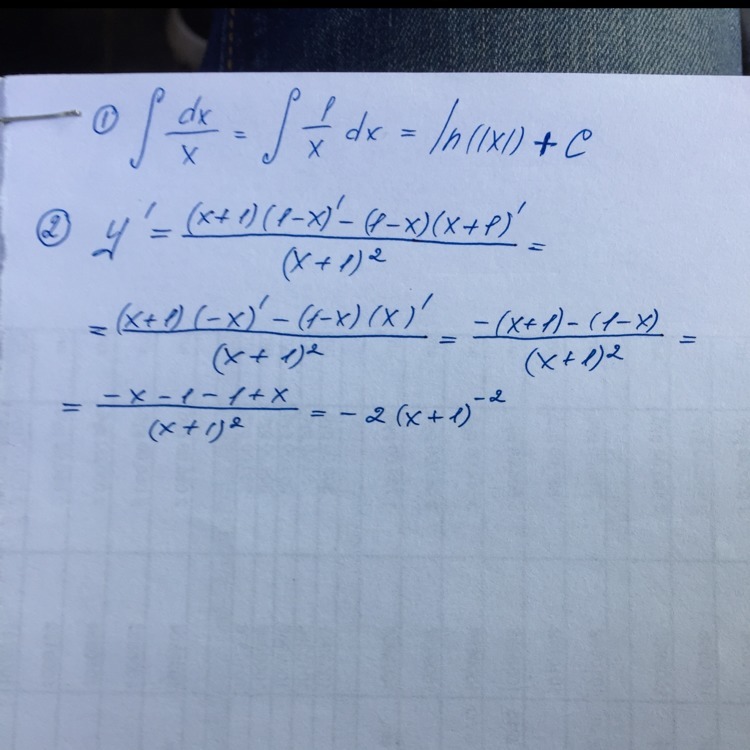 ① ∫ dx/x = ∫ 1/x dx = ln(|x|) + C
② y' = ((x+1)(1-x)' - (1-x)(x+1)')/(x+1)² =
= ((x+1)(-x)' - (1-x)(x)')/(x+1)² = (-(x+1) - (1-x))/(x+1)² =
= (-x-1-1+x)/(x+1)² = -2(x+1)⁻²